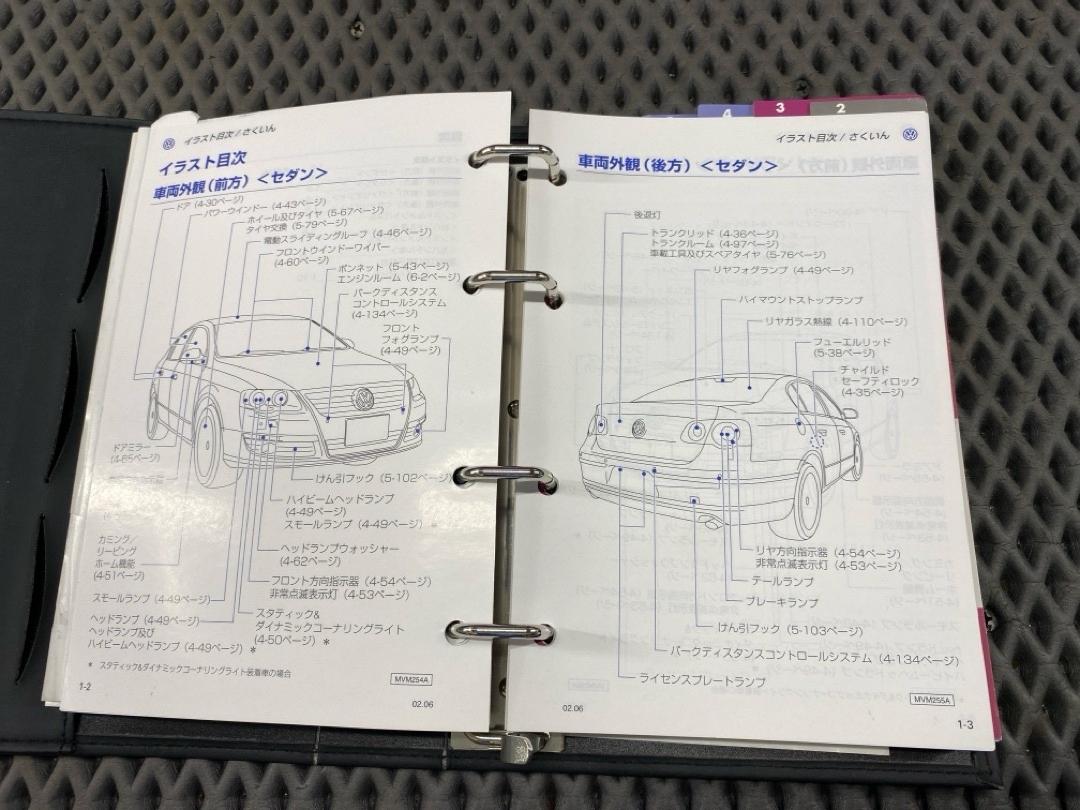 イラスト目次/さくいん
イラスト目次
車両外観(前方)<セダン>
ドア(4-30ページ)
パワーウインドー(4-43ページ)
ホイール及びタイヤ(5-67ページ)
タイヤ交換(5-79ページ)
電動スライディングルーフ(4-46ページ)
フロントウインドーワイパー
(4-60ページ)
ボンネット(5-43ページ)
エンジンルーム(6-2ページ)
パークディスタンス
コントロールシステム
(4-134ページ)
フロント
フォグランプ
(4-49ページ)
ドアミラー
(4-65ページ)
けん引フック(5-102ページ)
ハイビームヘッドランプ
(4-49ページ)
スモールランプ(4-49ページ)*
カミング/
リービング
ホーム機能
(4-51ページ)
ヘッドランプウォッシャー
(4-62ページ)
フロント方向指示器(4-54ページ)
非常点滅表示灯(4-53ページ)
スモールランプ(4-49ページ)
スタティック&
ダイナミックコーナリングライト
(4-50ページ)*
ヘッドランプ(4-49ページ)
ヘッドランプ及び
ハイビームヘッドランプ(4-49ページ)*
* スタティック&ダイナミックコーナリングライト装着車の場合
MVM254A
1-2
02.06
4
3
2
イラスト目次/さくいん
車両外観(後方)<セダン>
後退灯
トランクリッド(4-36ページ)
トランクルーム(4-97ページ)
車載工具及びスペアタイヤ(5-76ページ)
リヤフォグランプ(4-49ページ)
ハイマウントストップランプ
リヤガラス熱線(4-110ページ)
フューエルリッド
(5-38ページ)
チャイルド
セーフティロック
(4-35ページ)
リヤ方向指示器(4-54ページ)
非常点滅表示灯(4-53ページ)
テールランプ
ブレーキランプ
けん引フック(5-103ページ)
パークディスタンスコントロールシステム(4-134ページ)
ライセンスプレートランプ
MVM255A
02.06
1-3